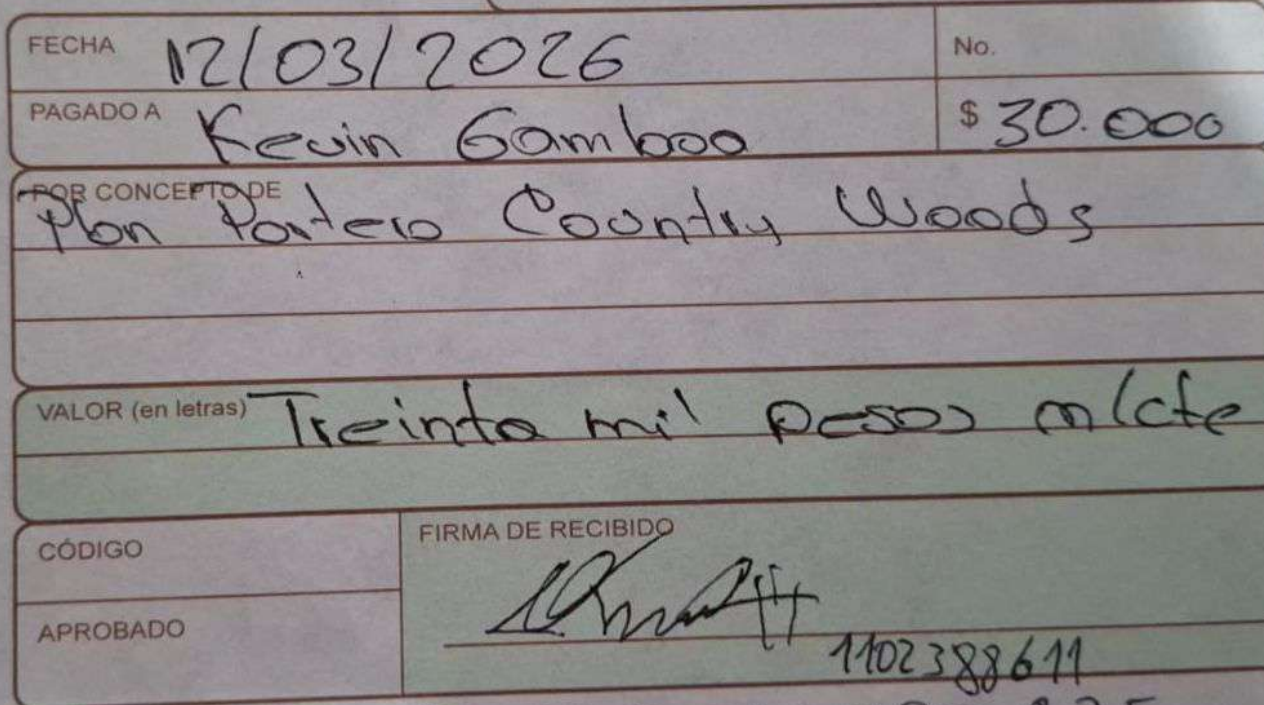 FECHA 12/03/2026
No.
PAGADO A Kevin Gamboa
$ 30.000
POR CONCEPTO DE
Plan Portero Country Woods
VALOR (en letras) Treinta mil pesos m/cte
CÓDIGO
FIRMA DE RECIBIDO
APROBADO
1102388611